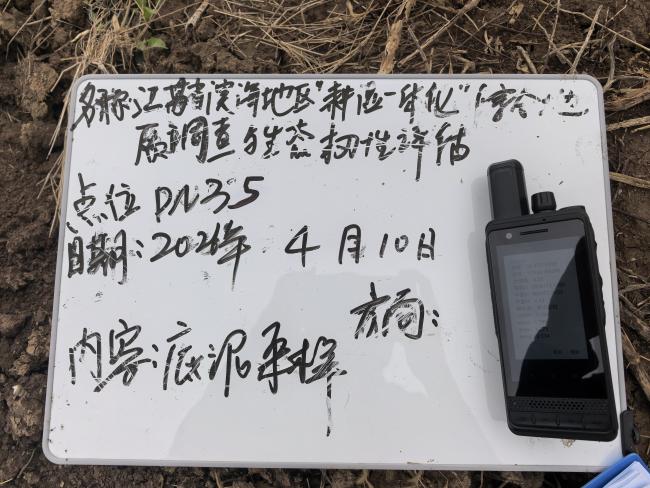 名称:江苏省滨海地区"耕地一体化"综合地
质调查与生态韧性评估
点位 DN35
日期:2026年 4月10日
方向:
内容:底泥采样